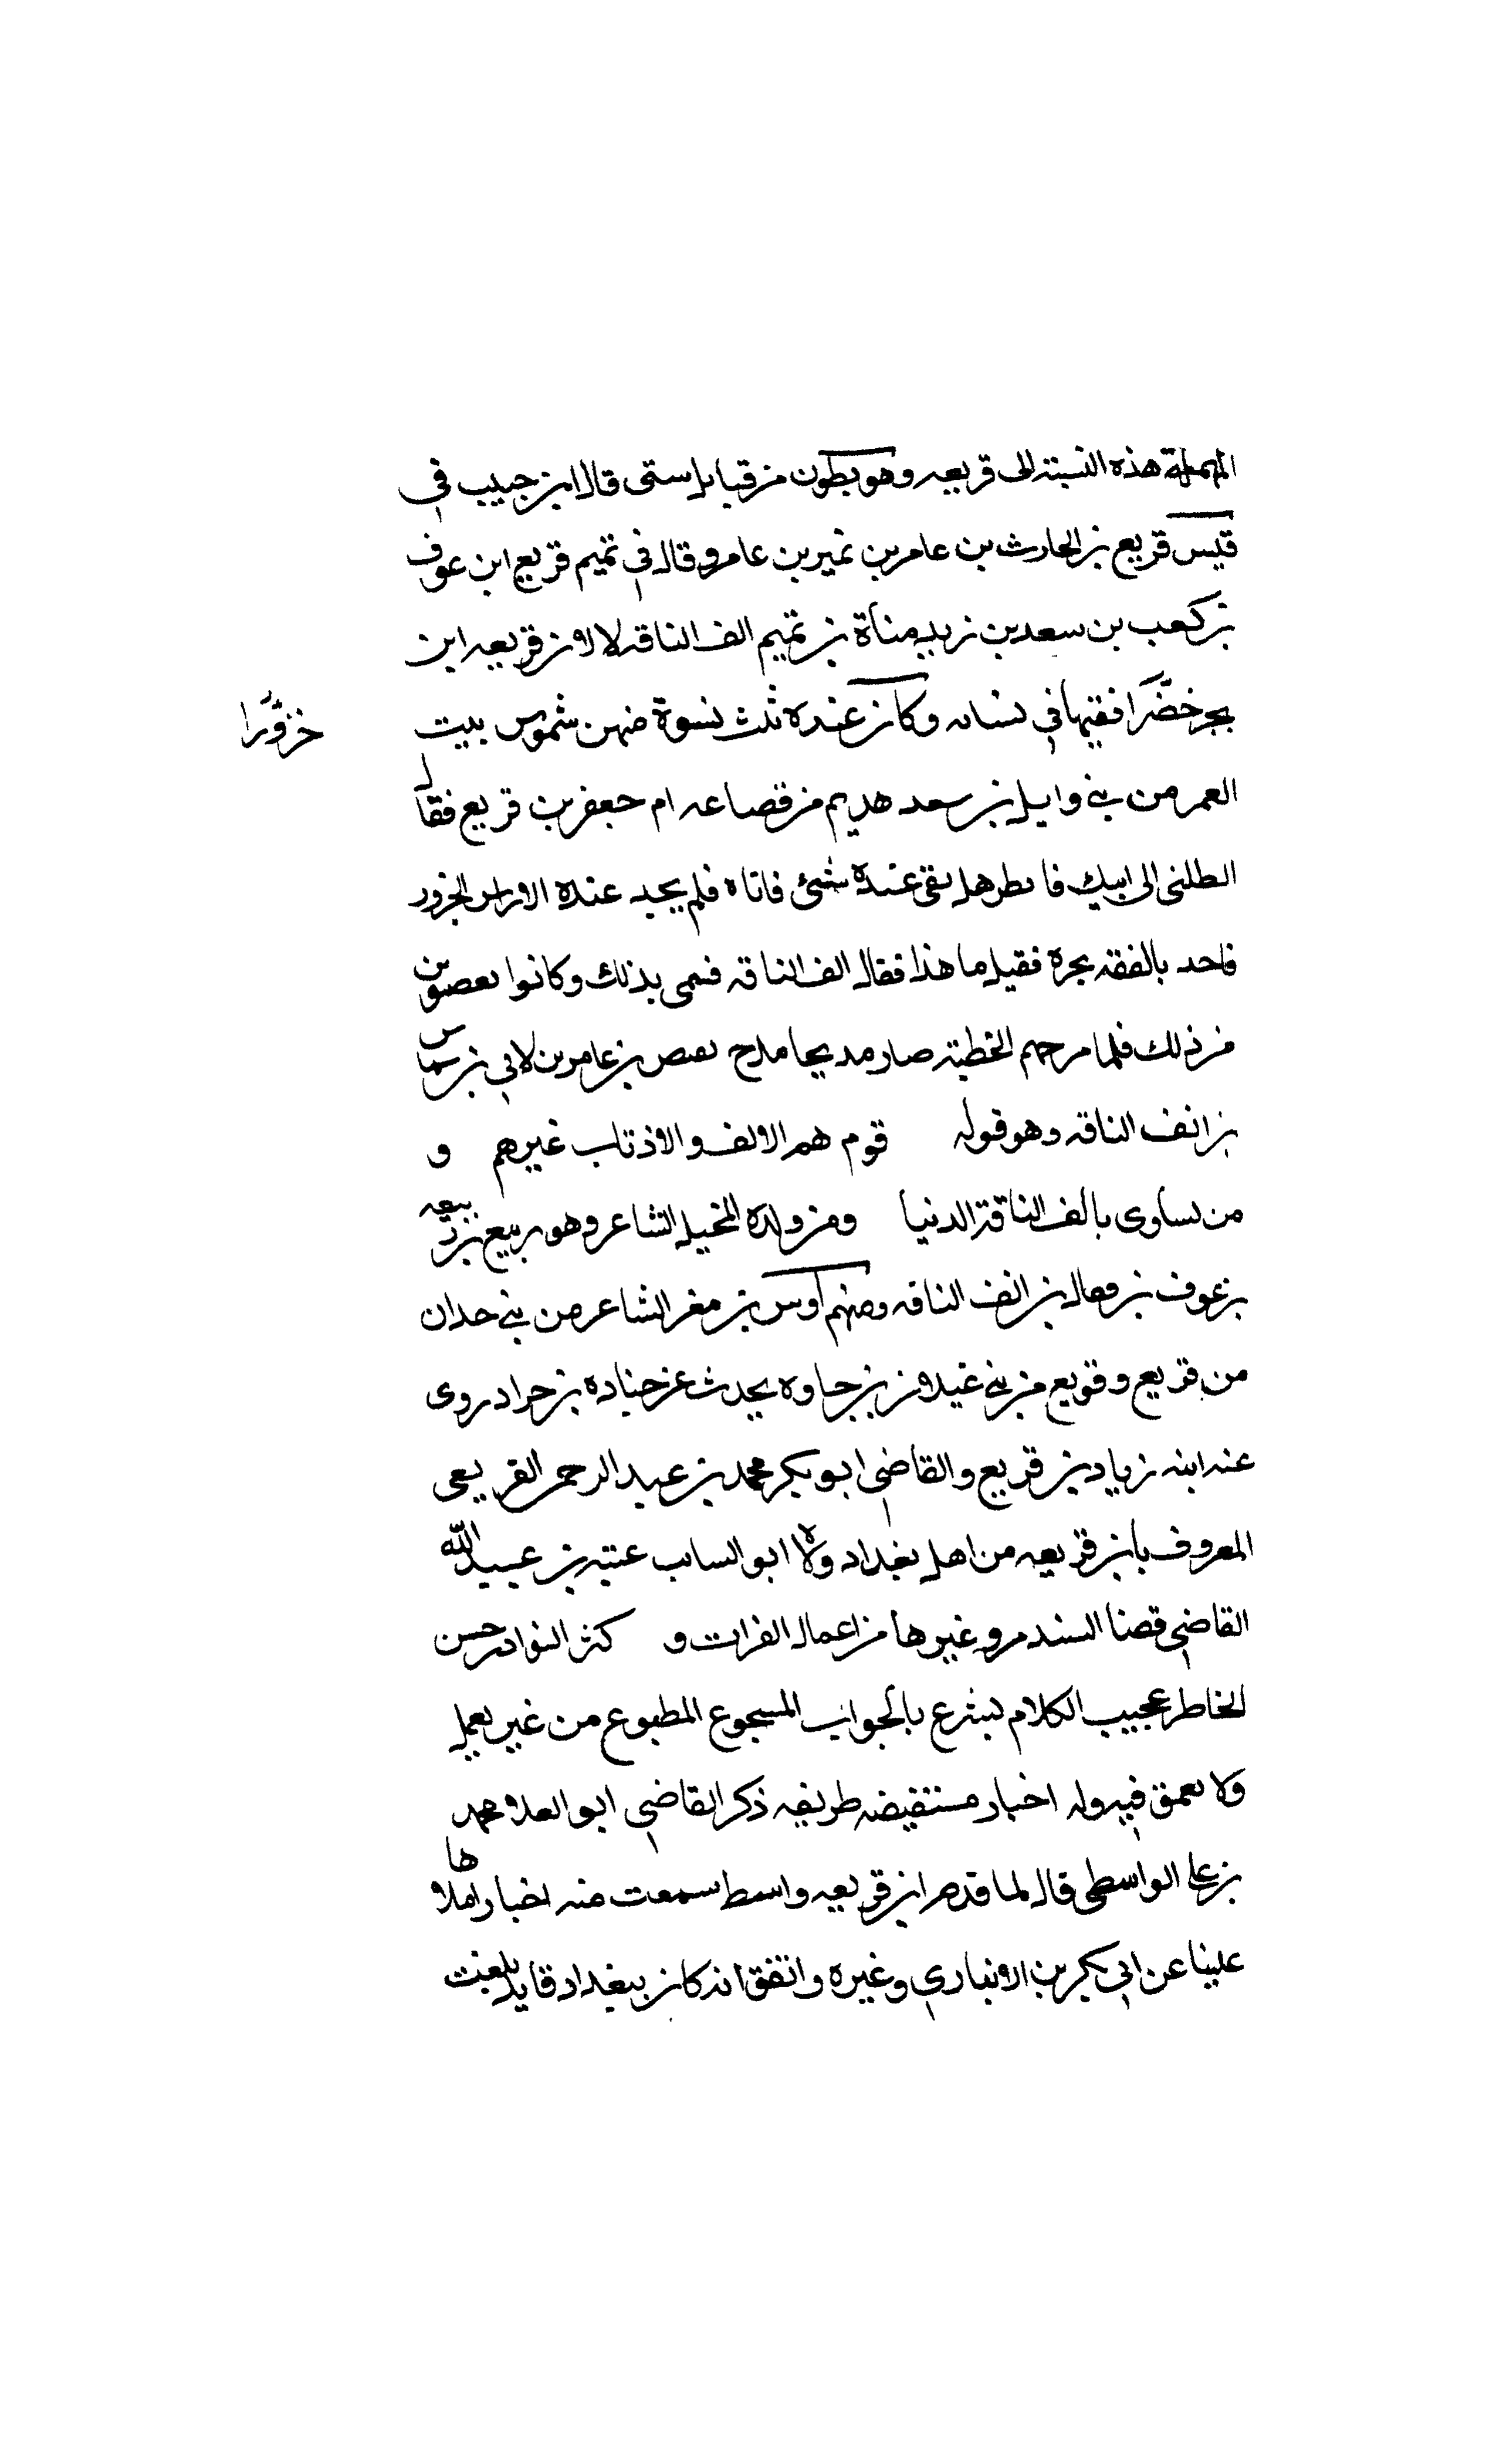 المهملة هذه النسبة الى قريعه وهو بطون من قبايل ستى قال ابن حبيب في
قيس قريع بن الحارث بن عامر بن نمير بن عامر وقال في تميم قريع ابن عوف
بن كعب بن سعد بن زيد مناة بن تميم انف الناقه لان قريعه ابن
خزورا
نحر فقسمها في نسائه وكان عنده ثلث نسوة منهن شموس بيت
العمر من بني وايل بن سعد هديم من قصاعه ام جعفر بن قريع فقال
انطلق الى ابيك فانطر هل بقى عنده شئ فاتاه فلم يجد عنده الا راس الجزور
فاخد بانفه يجره فقيل ما هذا فقال انف الناقه فسمى بذلك وكانوا يعصبون
من ذلك فلما مدحهم الحطيئة صار مديحا مدح بعيص بن عامر بن لاي بن شماس
بن انف الناقه وهو قوله قوم هم الانف والاذناب غيرهم و
من يساوى بانف الناقة الدنيا ومن ولده المخبل الشاعر وهو ربيع بن ربيعه
بن عوف بن قتال بن انف الناقه ومنهم اوس بن مغرا الشاعر من بني حدان
من قريع وقريع من بني غيلان بن جاوه يحدث عن جناده بن جراد روى
عنه ابنه زياد بن قريع والقاضي ابو بكر محمد بن عبد الرحمن القريعى
المعروف بابن قريعه من اهل بغداد ولاه ابو السائب عتبه بن عبيد الله
القاضي قضا السندم وغيرها من اعمال الفرات و كثر النوادر حسن
الخاطر عجيب الكلام يسرع بالجواب المسجوع المطبوع من غير تعمل
ولا تعمق فيه وله اخبار مستفيضه طريفه ذكر القاضي ابو العلا محمد
بن على الواسطى قال لما قدم ابن قريعه واسط سمعت منه اخبار املاها
علينا عن ابي بكر بن الانباري وغيره واتفق انه كان ببغداد قايد يلقب